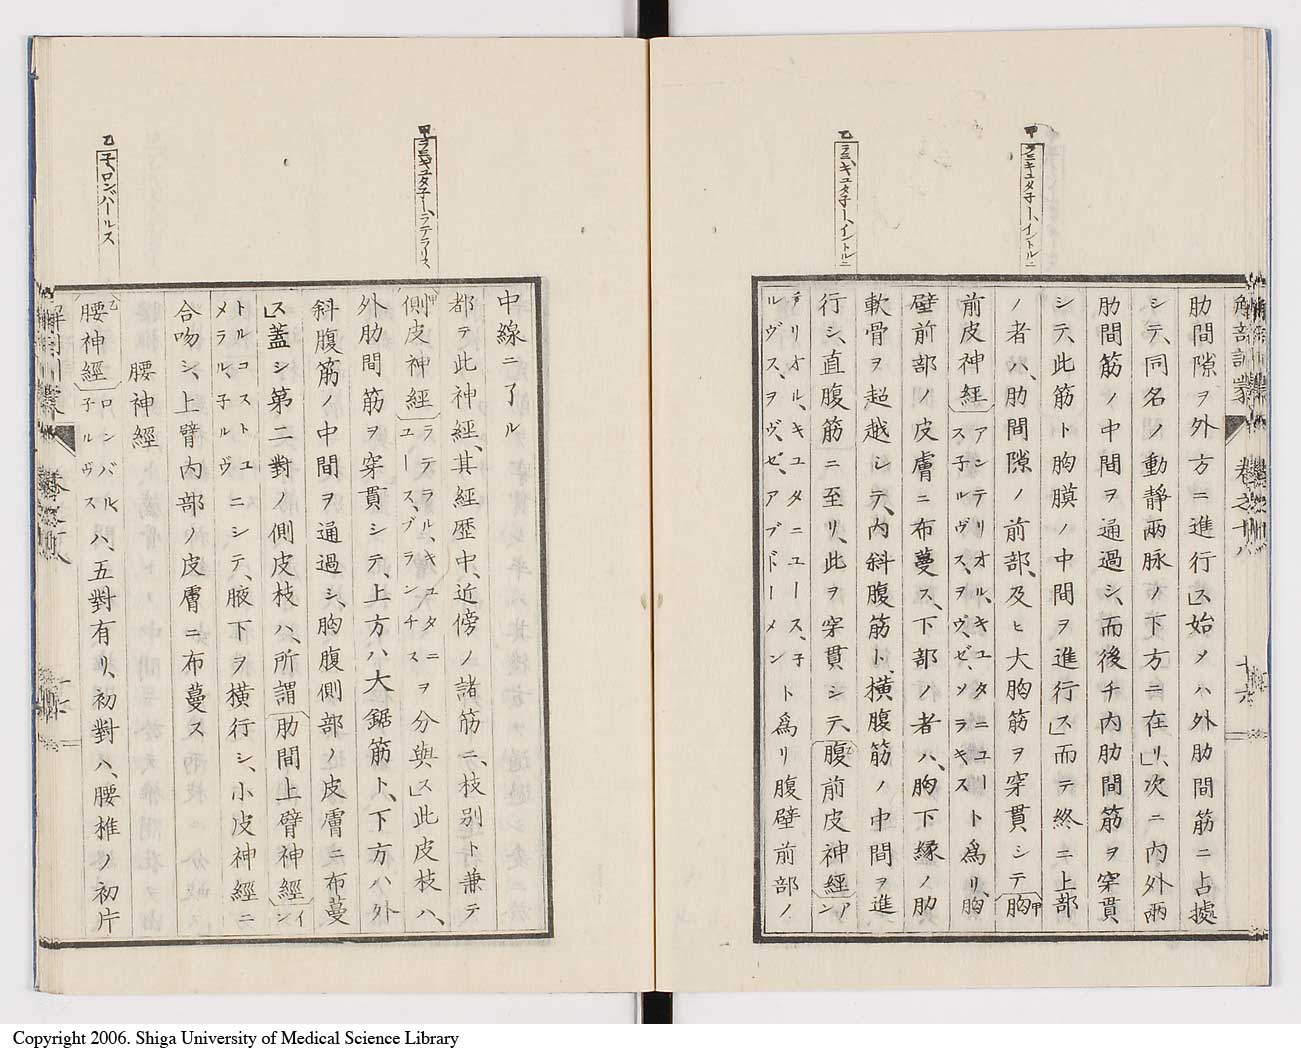 甲 ラミ、キュタ子ー、イントルニ
乙 ラミ、キュタ子ー、イントルニ
解剖訓蒙 卷之十八 十六
肋間隙ヲ外方ニ進行」ス始メハ外肋間筋ニ占據
シテ、同名ノ動靜兩脉ノ下方ニ在リ、」次ニ内外兩
肋間筋ノ中間ヲ通過シ、而後チ内肋間筋ヲ穿貫
シテ、此筋ト胸膜ノ中間ヲ進行」ス而テ終ニ上部
ノ者ハ、肋間隙ノ前部、及ヒ大胸筋ヲ穿貫シテ胸甲
前皮神經 アンテリオル、キユタニユー ス子ルヴス、ヲヴ、ゼ、ソラキス ト爲リ、胸
壁前部ノ皮膚ニ布蔓ス、下部ノ者ハ、胸下緣ノ肋
軟骨ヲ超越シテ、内斜腹筋ト横腹筋ノ中間ヲ進
行シ、直腹筋ニ至リ、此ヲ穿貫シテ、腹乙前皮神經 アン
テリオル、キユタニユース、子 ルヴス、ヲヴ、ゼ、アブドーメン ト爲リ腹壁前部ノ
甲 ラミ、キュタ子ー、ラテラリス
乙 子、ロンバールス
中線ニ了ル
都テ此神經、其經歴中、近傍ノ諸筋ニ、枝別ト兼テ
側甲皮神經 ラテラル、キユタニ ユース、ブランチス ヲ分與ス」此皮枝ハ、
外肋間筋ヲ穿貫シテ、上方ハ大鋸筋ト、下方ハ外
斜腹筋ノ中間ヲ通過シ、胸腹側部ノ皮膚ニ布蔓
ス」蓋シ第二對ノ側皮枝ハ、所謂肋間上臂神經 イン
トルコストユ メラル、子ルヴ ニシテ、腋下ヲ横行シ、小皮神經ニ
合吻シ、上臂内部ノ皮膚ニ布蔓ス
腰神經
腰乙神經 ロンバル、 子ルヴス ハ、五對有リ、初對ハ、腰椎ノ初片